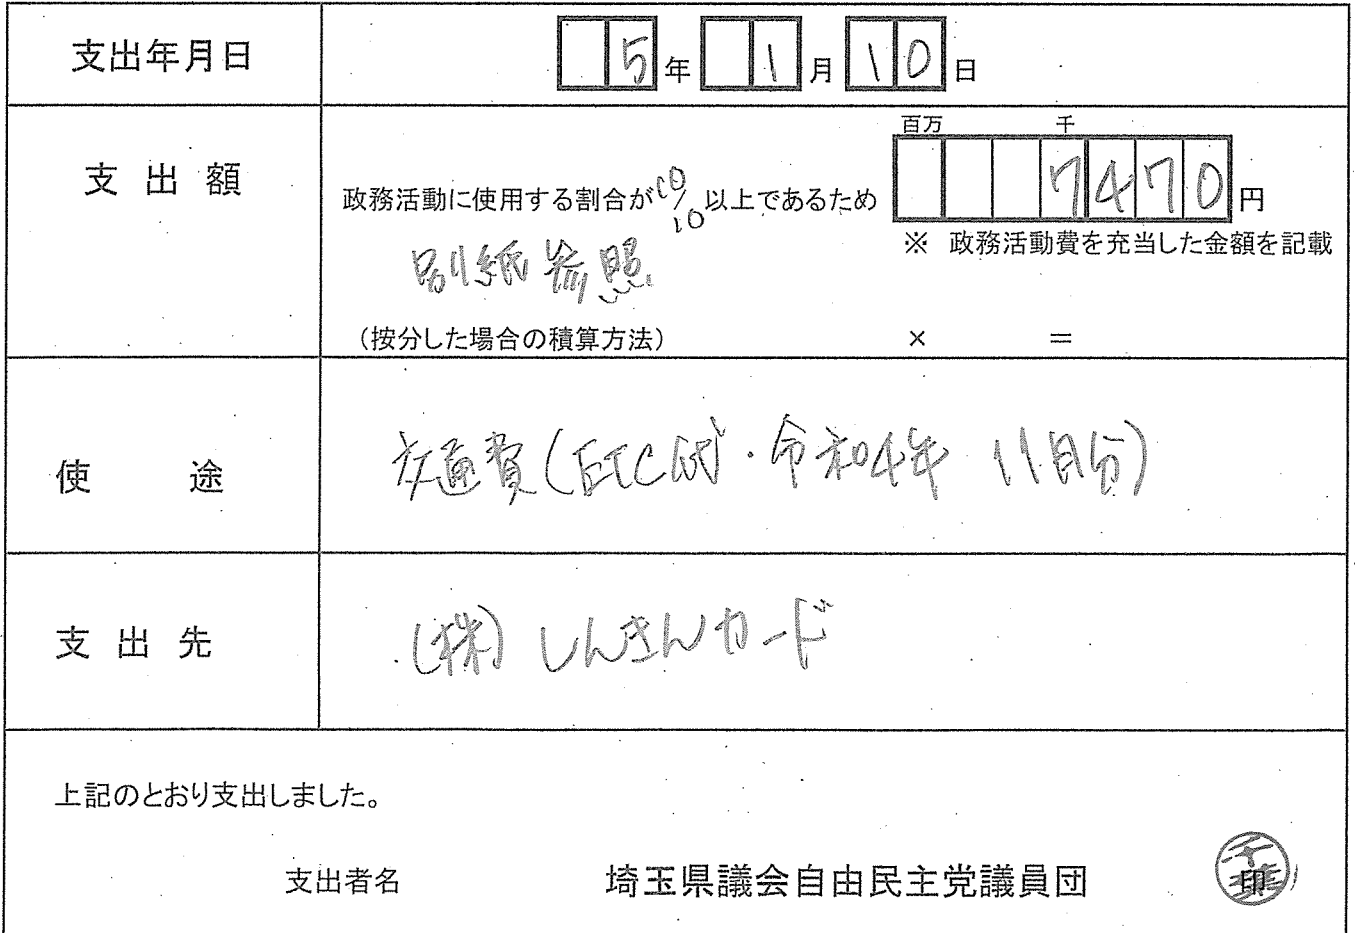 支出年月日 5年 1月 10日
百万 千
支出額 政務活動に使用する割合が10/10以上であるため 7470円
※ 政務活動費を充当した金額を記載
別紙参照
(按分した場合の積算方法) × =
使途 交通費(ETC代・令和4年 11月分)
支出先 (株)しんきんカード
上記のとおり支出しました。
支出者名 埼玉県議会自由民主党議員団 印